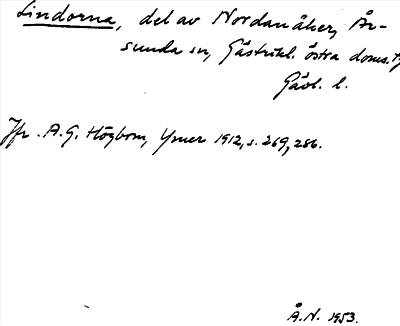 Lindorna, del av Nordanåker, År-
sunda sn, Gästrikl. östra doms.
Gävl. l.
Jfr. A.G. Högbom, Ymer 1912, s. 269, 286.
Å.N. 1953.